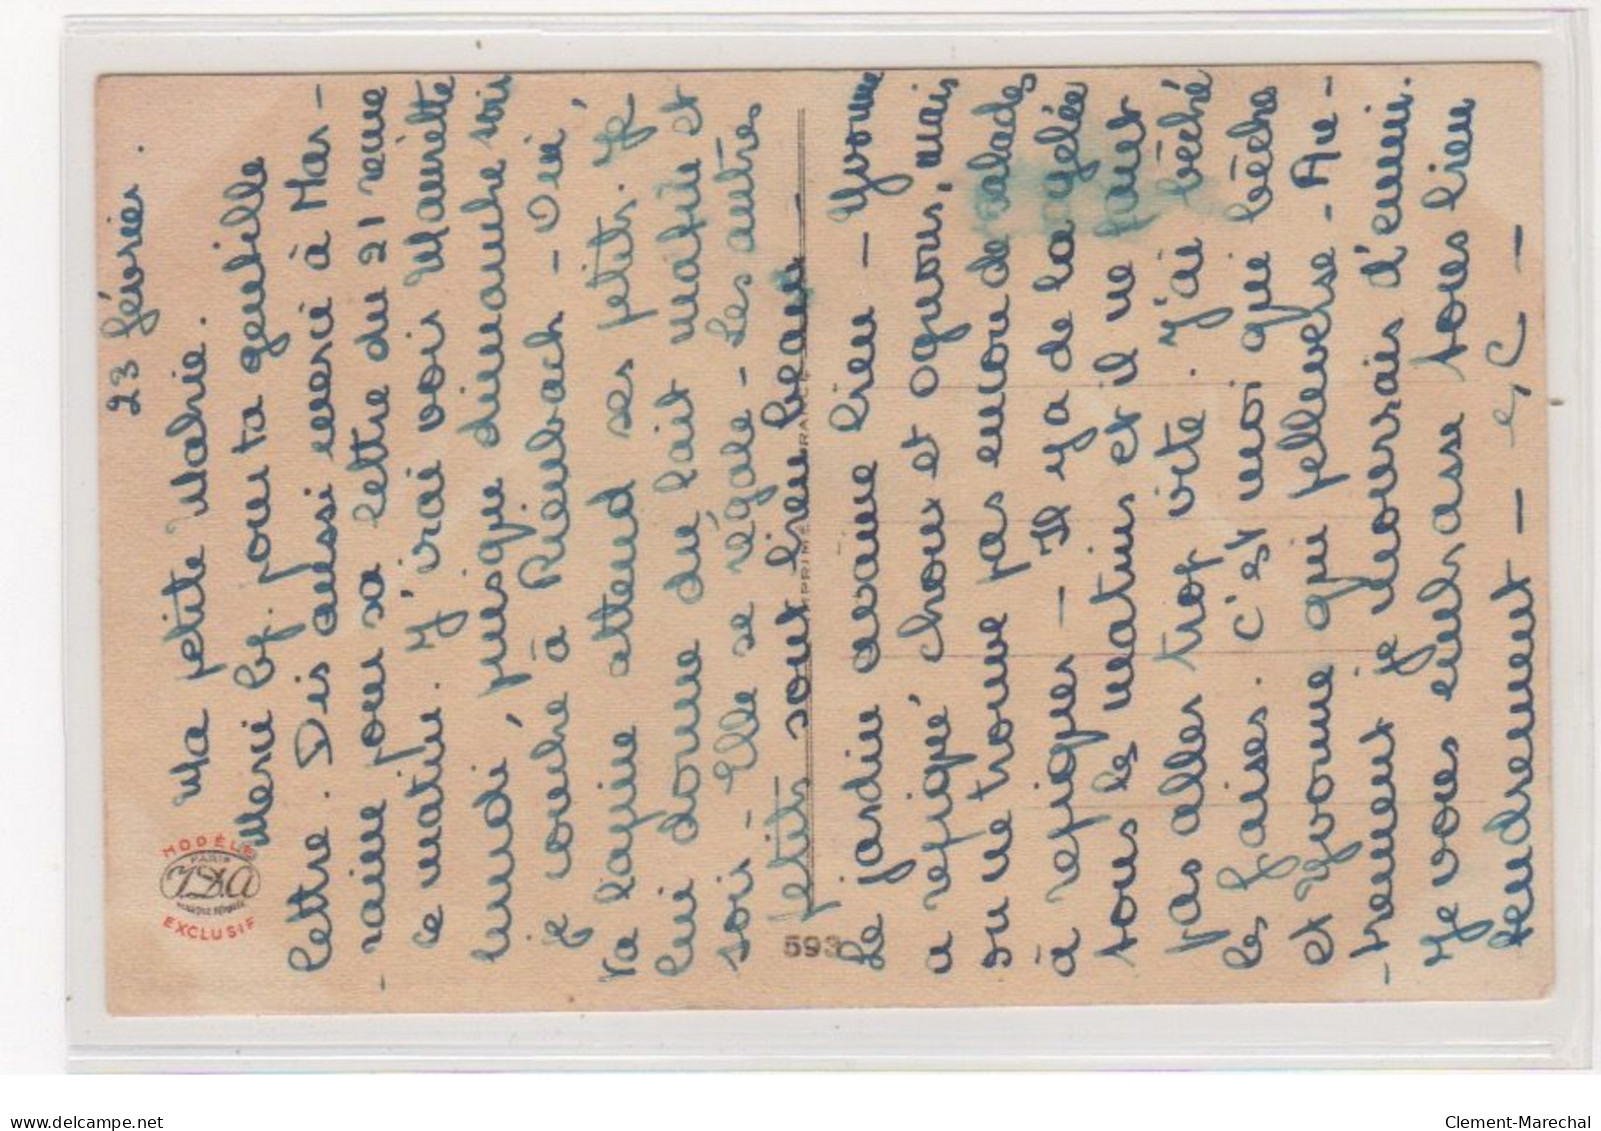 23 février.
Ma petite Mahie.
Merci bp. pour ta gentille
lettre. Dis aussi merci à Mar-
-raine pour sa lettre du 21 reçue
ce matin. J'irai voir Mauriette
lundi, puisque dimanche soir
je couche à Rienbach - Oui
la lapine attend ses petits. Je
lui donne du lait matin et
soir - Elle se régale - Les autres
petits sont bien beaux -
Le jardin avance bien - Yvonne
a repiqué choux et ognons, mais
on ne trouve pas encore de salades
à repiquer - Il y a de la gelée
tous les matins et il ne faut
pas aller trop vite. J'ai bêché
les fraises. C'est moi qui bêche
et Yvonne qui pelleverse - Au-
-trement je mourrais d'ennui.
Je vous embrasse tous bien
tendrement - C -
MODÈLE
PARIS
EXCLUSIF
593
www.delcampe.net
Clement-Marechal